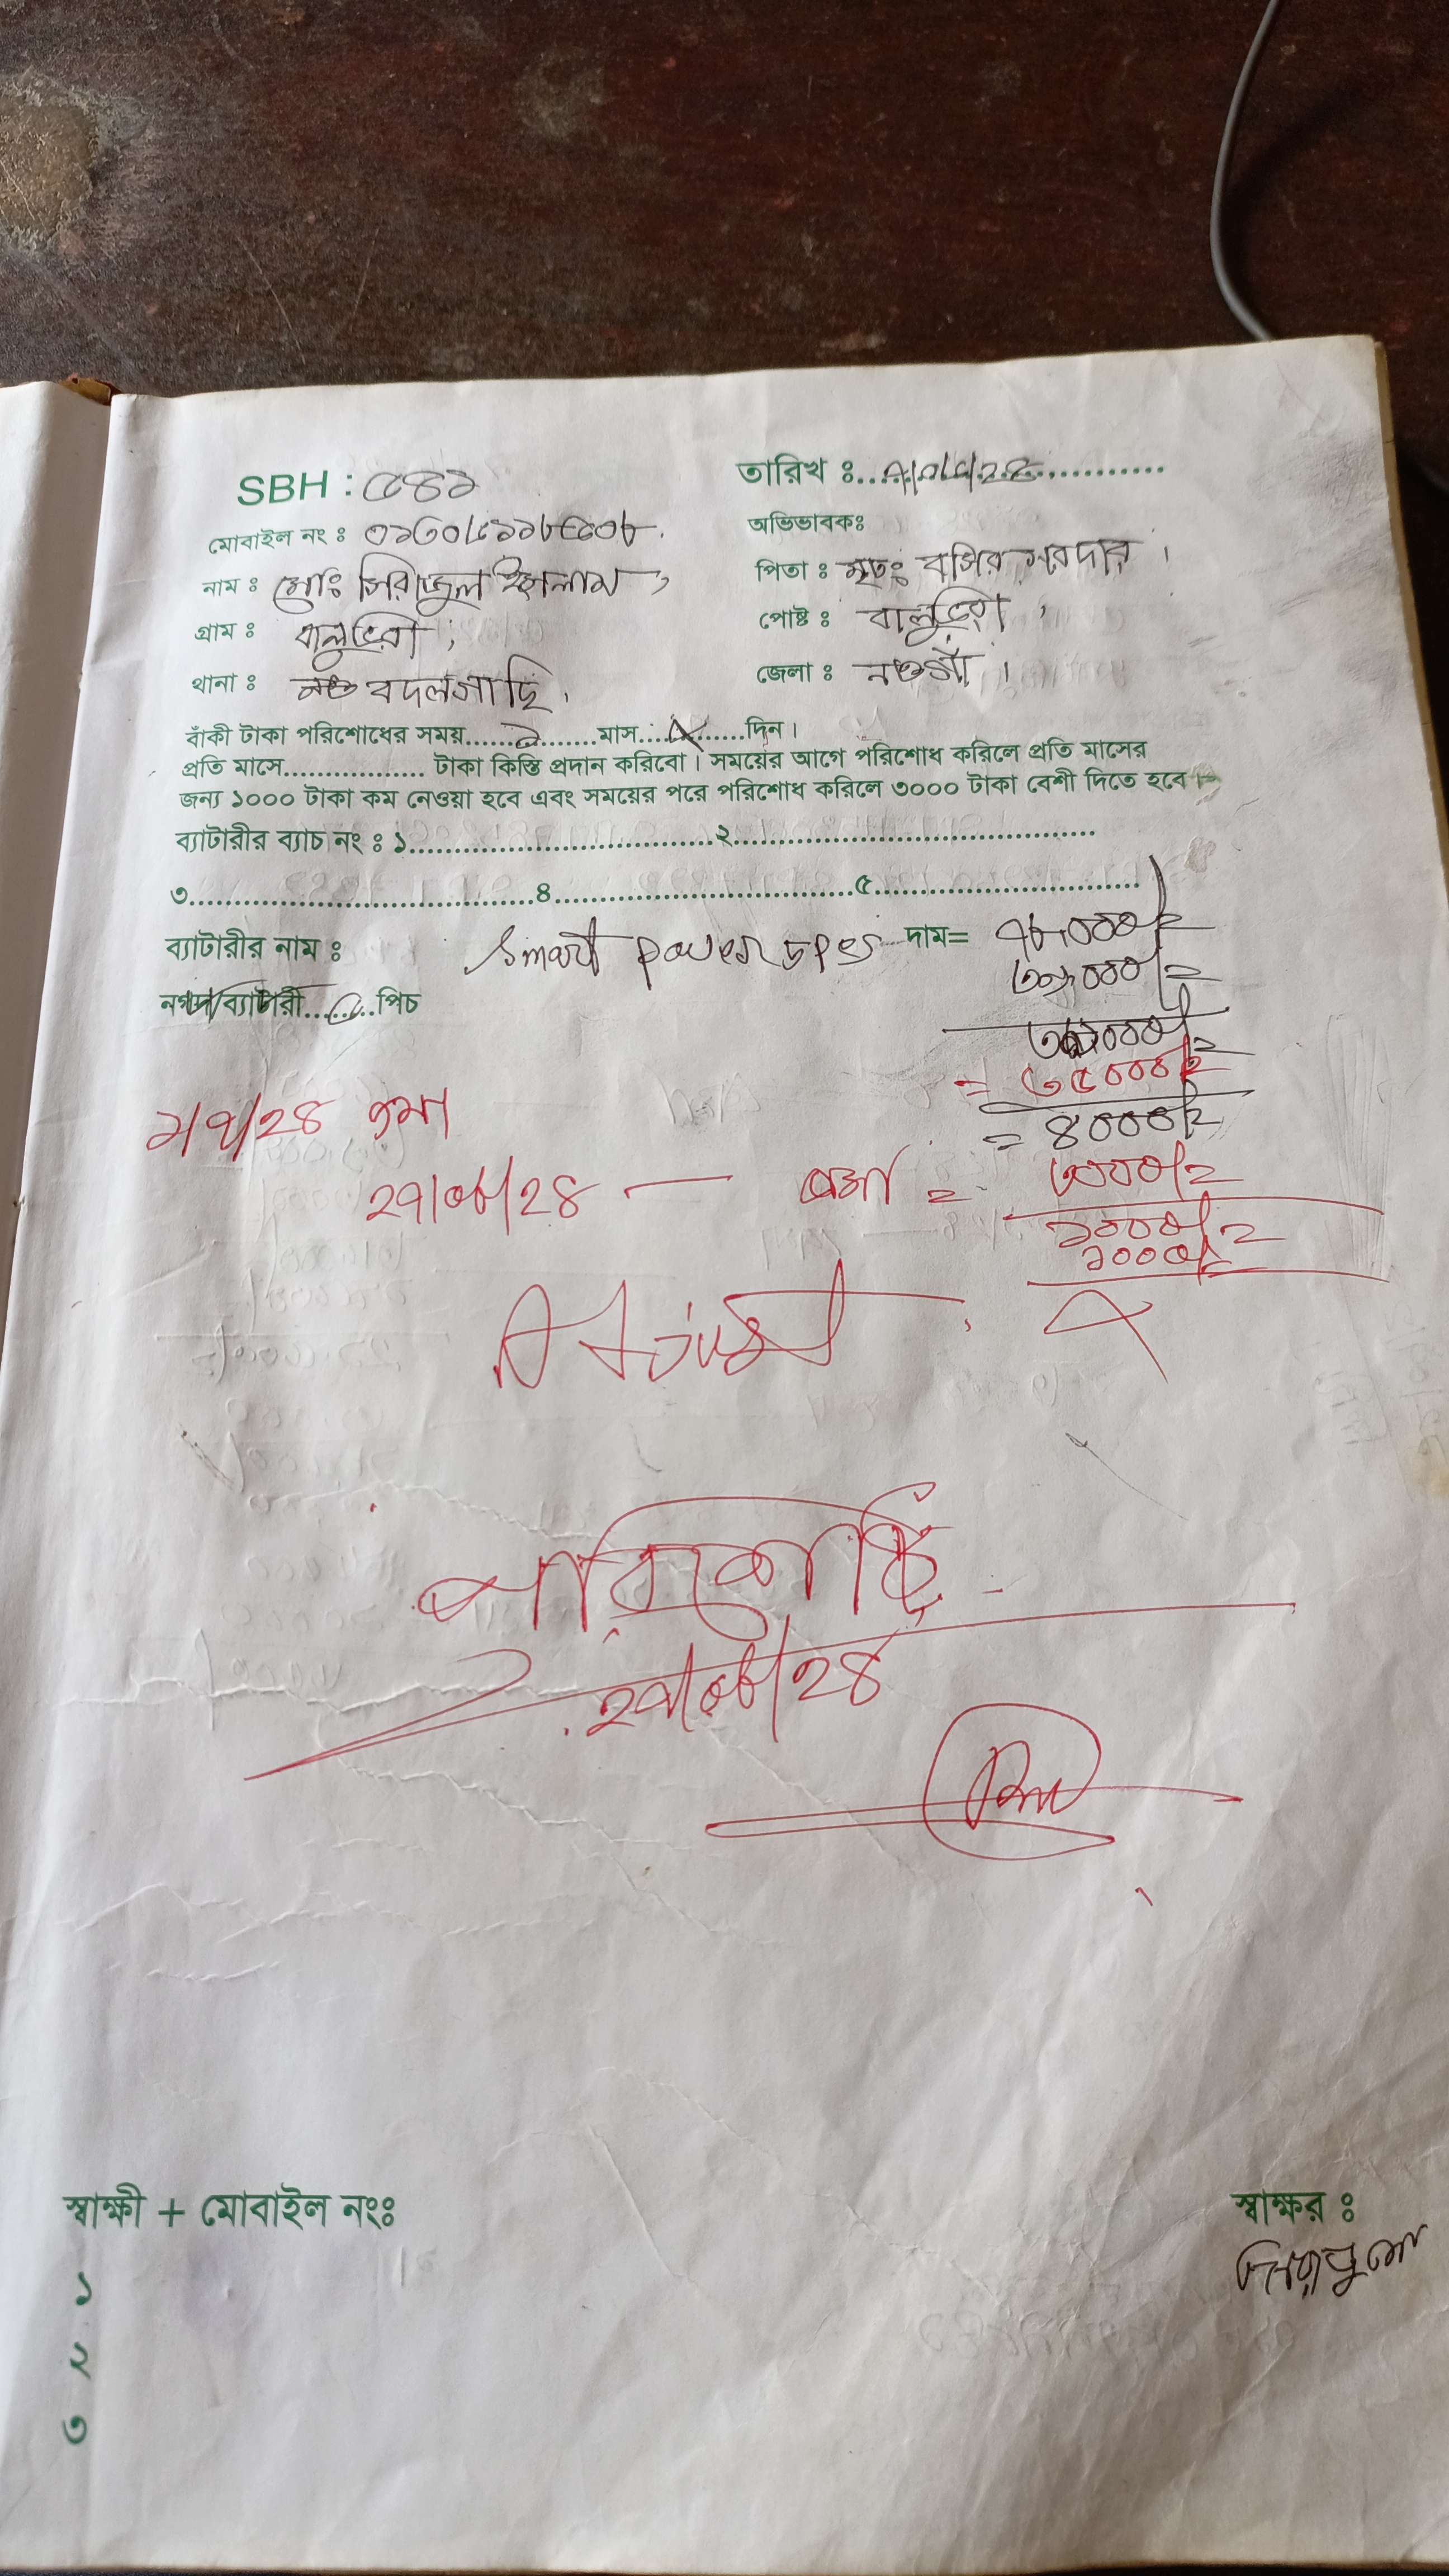 SBH : ৫৪১ তারিখ ঃ
মোবাইল নং ঃ অভিভাবকঃ
নাম ঃ মোঃ সিরাজুল ইসলাম, পিতা ঃ মৃতঃ বসির সরদার।
গ্রাম ঃ বালুভরা, পোষ্ট ঃ বালুভরা,
থানা ঃ বদলগাছি, জেলা ঃ নওগাঁ।
বাঁকী টাকা পরিশোধের সময়......১......মাস...X...দিন।
প্রতি মাসে................ টাকা কিস্তি প্রদান করিবো। সময়ের আগে পরিশোধ করিলে প্রতি মাসের
জন্য ১০০০ টাকা কম নেওয়া হবে এবং সময়ের পরে পরিশোধ করিলে ৩০০০ টাকা বেশী দিতে হবে।
ব্যাটারীর ব্যাচ নং ঃ ১................................২................................
৩................................৪................................৫................................
ব্যাটারীর নাম ঃ Smart power ৫pes দাম= ৭৮,০০০/=
৩৯,০০০/=
নগদ ব্যাটারী........পিচ
৩৯০০০/=
= ৩৫০০০/=
২/৭/২৪ জমা
= ৪০০০/=
২৭/০৮/২৪ — জমা = ৩০০০/=
১০০০/=
১০০০/=
পরিশোধ
২৭/০৮/২৪
স্বাক্ষী + মোবাইল নংঃ স্বাক্ষর ঃ
সিরাজুল
১
২
৩